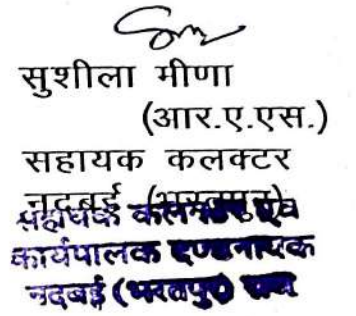 सुशीला मीणा
(आर.ए.एस.)
सहायक कलक्टर
नदबई (भरतपुर)
सहायक कलक्टर एवं
कार्यपालक दण्डनायक
नदबई (भरतपुर) राज